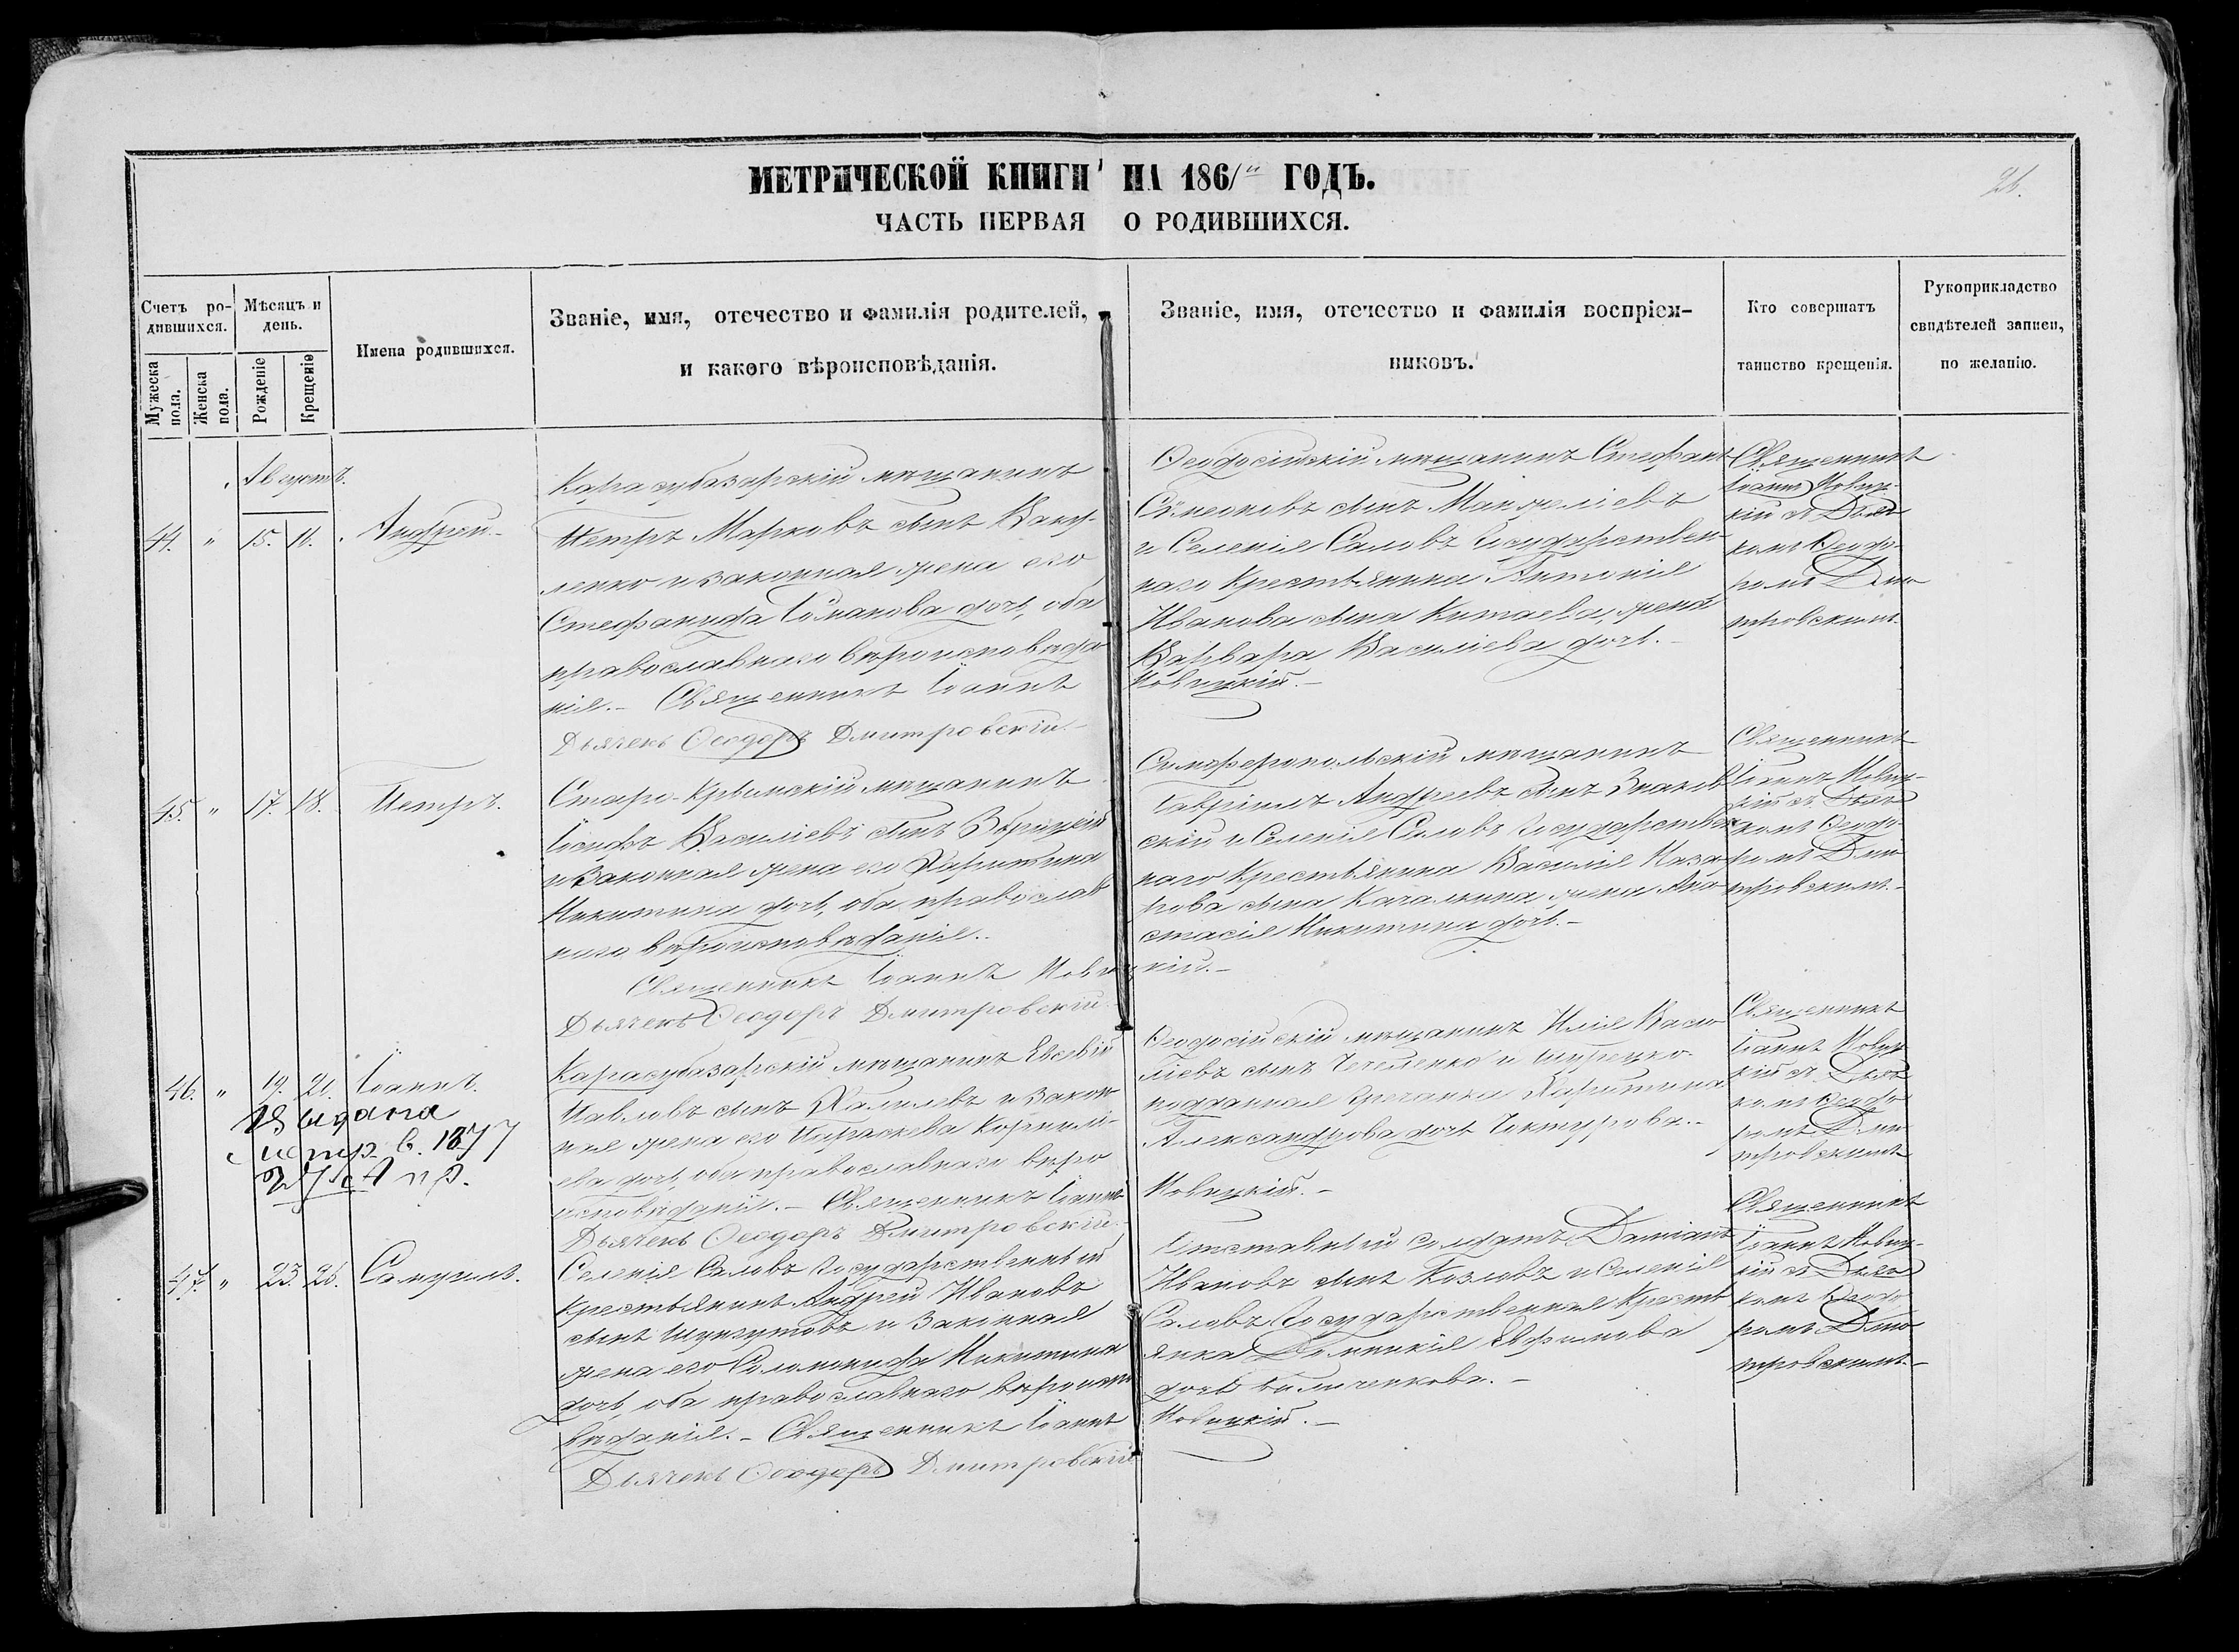 МЕТРИЧЕСКОЙ КНИГИ НА 1861й ГОДЪ.
26.
ЧАСТЬ ПЕРВАЯ О РОДИВШИХСЯ.
Счетъ ро-
дившихся.
Мужеска пола.
Женска пола.
Мѣсяцъ и
день.
Рожденіе
Крещеніе
Имена родившихся.
Званіе, имя, отечество и фамилія родителей,
и какого вѣроисповѣданія.
Званіе, имя, отечество и фамилія воспріем-
никовъ.
Кто совершатъ
таинство крещенія.
Рукоприкладство
свидѣтелей записи,
по желанію.
Августъ.
44. " 15. 16. Андрей.
Карасубазарскій мѣщанинъ
Петръ Марковъ сынъ Баку-
ленко и законная жена его
Стефанида Романова дочь, оба
православнаго вѣроисповѣда
нія. – Священникъ Іоаннъ
Дьячекъ Ѳеодоръ Дмитровскій. –
Ѳеодосійскій мѣщанинъ Стефанъ
Сѵмеоновъ сынъ
и Селенія Саловъ Государствен-
наго Крестьянина Антонія
Иванова сына Китаева, жена
Варвара Василіева дочь. –
Новицкій. –
Священникъ
Іоаннъ Новиц-
кій съ Дьяч
комъ Ѳеодо-
ромъ Дми
тровскимъ
45. " 17. 18. Петръ.
Старо-Крымскій мѣщанинъ
Іосифъ Василіевъ сынъ Збрицкій
и законная жена его Харитина
Никитина дочь, оба православ
наго вѣроисповѣданія..
Священникъ Іоаннъ Новицкій. –
Дьячекъ Ѳеодоръ Дмитровскій.
Симферопольскій мѣщанинъ
Гавріилъ Андреевъ сынъ Знаков
скій и Селенія Саловъ Государствен
наго Крестьянина Василія Наза-
рова сына Качалкина жена Ана
стасія Никитина дочь. –
Священникъ
Іоаннъ Новиц-
кій съ Дьяч
комъ Ѳеодо-
ромъ Дми
тровскимъ. –
46. " 19. 21. Іоаннъ.
Выдана
метр. в. 1877
27го Апр.
Карасубазарскій мѣщанинъ Евсевій
Павловъ сынъ Халилевъ и закон
ная жена его Параскева Корнилі-
ева дочь, оба православнаго вѣро
исповѣданія. – Священникъ Іоаннъ
Дьячекъ Ѳеодоръ Дмитровскій.
Ѳеодосійскій мѣщанинъ Илія Васи
ліевъ сынъ и турецко-
подданная Гречанка Харитина
Александрова дочь
Новицкій. –
Священникъ
Іоаннъ Новиц
кій съ Дьяч
комъ Ѳеодо
ромъ Дми
тровскимъ
47. " 23. 26. Самуилъ.
Селенія Саловъ Государственный
Крестьянинъ Андрей Ивановъ
сынъ Шунгутовъ и законная
жена его Соломонида Никитина
дочь, оба православнаго вѣроиспо
вѣданія. – Священникъ Іоаннъ
Дьячекъ Ѳеодоръ Дмитровскій
Отставный солдатъ Даміанъ
Ивановъ сынъ Козловъ и Селенія
Саловъ Государственная Кресть
янка Домникія Ефимова
дочь
Новицкій. –
Священникъ
Іоаннъ Новиц-
кій съ Дьяч
комъ Ѳеодо
ромъ Дми
тровскимъ. –